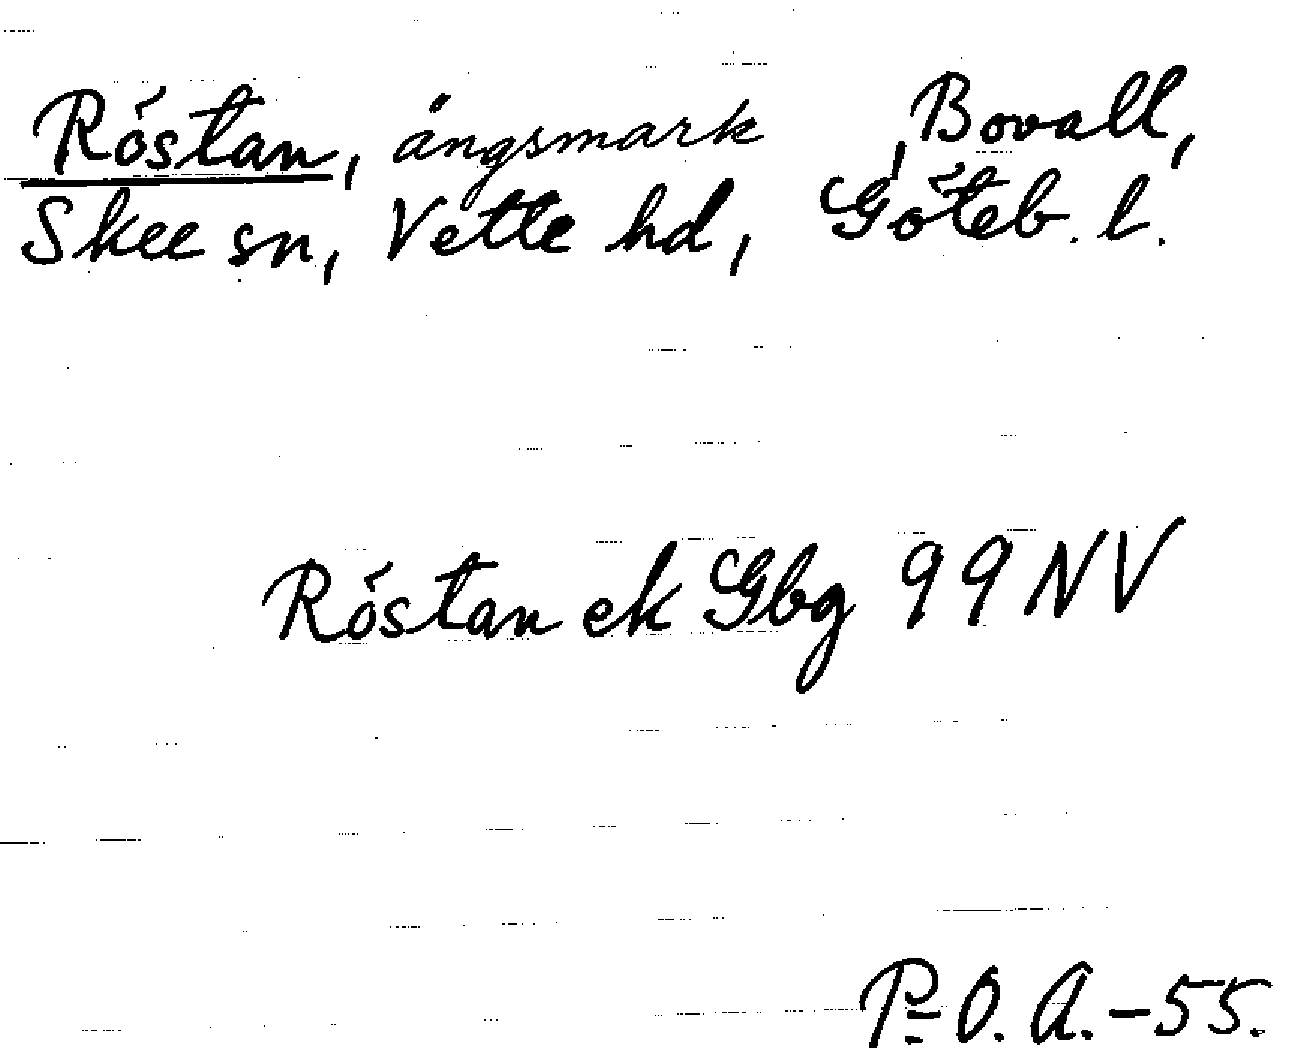 Röstan, ängsmark, Bovall,
Skee sn, Vette hd, Göteb. l.
Röstan ek Gbg 99 NV
P-O. A. -55.